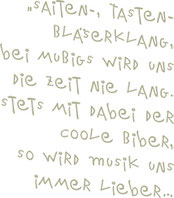 „Saiten-, Tasten-
Bläserklang,
bei Mubigs wird uns
die Zeit nie lang.
Stets mit dabei der
coole Biber,
so wird Musik uns
immer lieber...